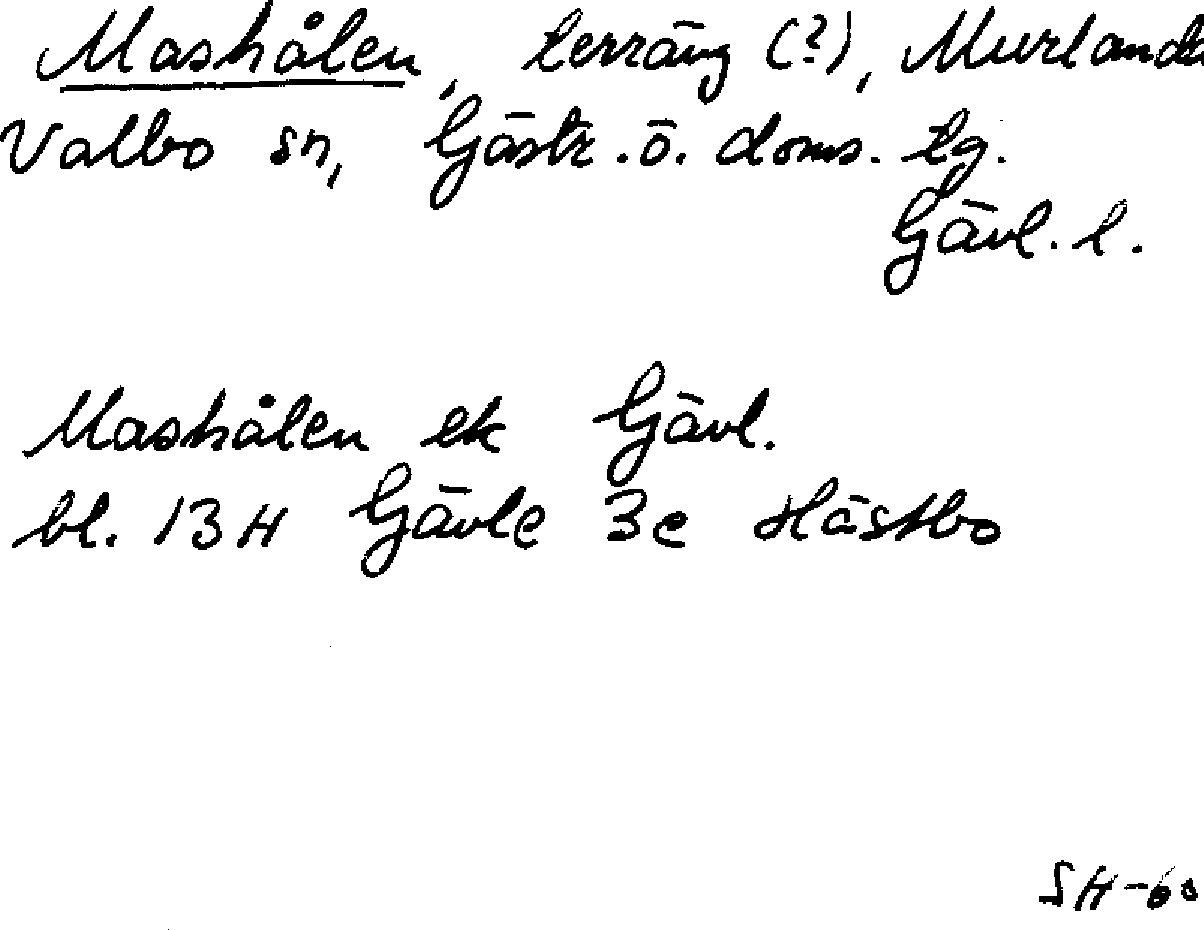 Mashålen, terräng (?), Murlanda
Valbo sn, Gästr. ö. doms. tg.
Gävl. l.
Mashålen ek Gävl.
bl. 13H Gävle 3e Hästbo
SH-60